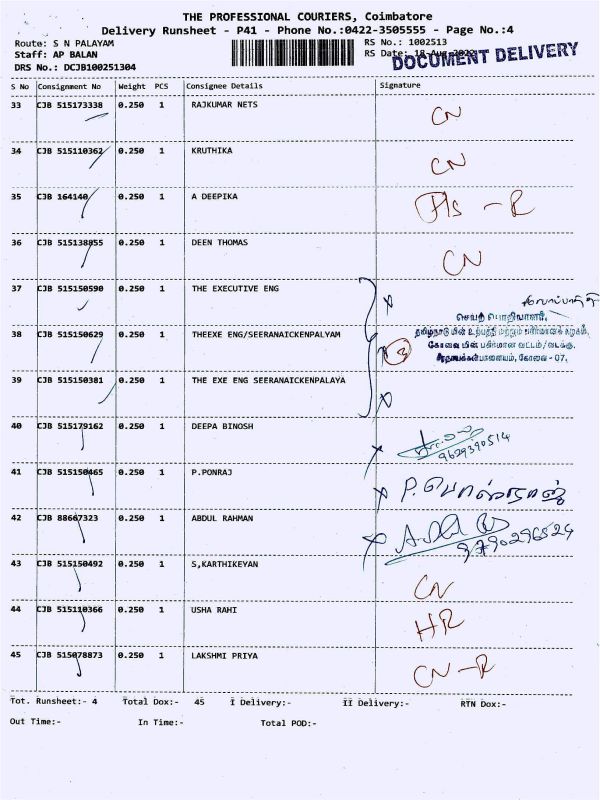 THE PROFESSIONAL COURIERS, Coimbatore
Delivery Runsheet - P41 - Phone No.:0422-3505555 - Page No.:4
Route: S N PALAYAM
Staff: AP BALAN
DRS No.: DCJB100251304
RS No.: 1002513
RS Date: 18-Aug-2022
DOCUMENT DELIVERY
S No Consignment No Weight PCS Consignee Details Signature
33 CJB 515173338 0.250 1 RAJKUMAR NETS CN
34 CJB 515110362 0.250 1 KRUTHIKA CN
35 CJB 164140 0.250 1 A DEEPIKA
36 CJB 515138855 0.250 1 DEEN THOMAS CN
37 CJB 515150590 0.250 1 THE EXECUTIVE ENG
செயற் பொறியாளர்,
தமிழ்நாடு மின் உற்பத்தி மற்றும் பகிர்மானக் கழகம்,
கோவை மின் பகிர்மான வட்டம்/வடக்கு,
சீரநாயக்கன்பாளையம், கோவை - 07.
38 CJB 515150629 0.250 1 THEEXE ENG/SEERANAICKENPALYAM 3
39 CJB 515150381 0.250 1 THE EXE ENG SEERANAICKENPALAYA
40 CJB 515179162 0.250 1 DEEPA BINOSH
9629390514
41 CJB 515150465 0.250 1 P.PONRAJ P. பொன்ராஜ்
42 CJB 88667323 0.250 1 ABDUL RAHMAN
9790296524
43 CJB 515150492 0.250 1 S,KARTHIKEYAN CN
44 CJB 515110366 0.250 1 USHA RAHI HR
45 CJB 515078873 0.250 1 LAKSHMI PRIYA CN-R
Tot. Runsheet:- 4 Total Dox:- 45 I Delivery:- II Delivery:- RTN Dox:-
Out Time:- In Time:- Total POD:-